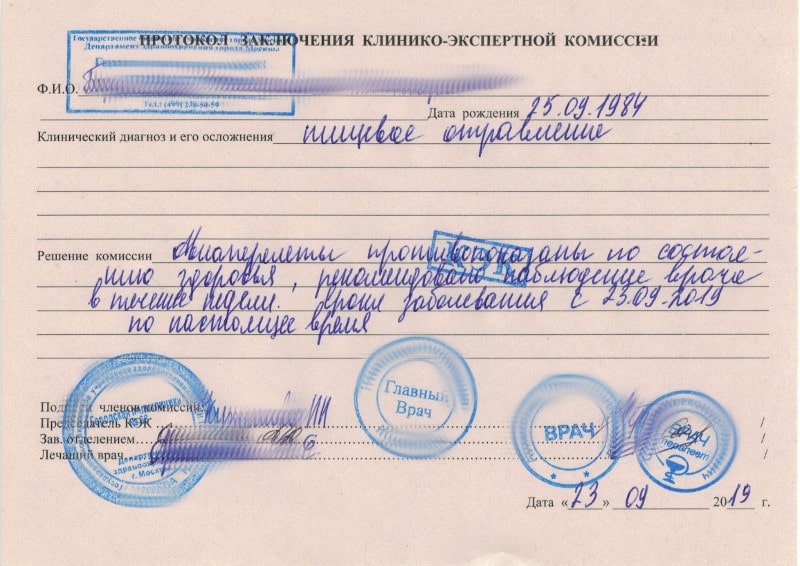 ПРОТОКОЛ ЗАКЛЮЧЕНИЯ КЛИНИКО-ЭКСПЕРТНОЙ КОМИССИИ
Государственное
Департамент здравоохранения города Москвы
Ф.И.О.
Дата рождения 25.09.1984
Клинический диагноз и его осложнения пищевое отравление
Решение комиссии Авиаперелеты противопоказаны по состоя-
нию здоровья, рекомендовано наблюдение врача
в течение недели. Сроки заболевания с 23.09.2019
по настоящее время
КЭК
Подписи членов комиссии:
Председатель КЭК
Зав. отделением
Лечащий врач
Главный
Врач
ВРАЧ
ВРАЧ
терапевт
Департамент
здравоохранения
г. Москвы
Дата «23» 09 2019 г.